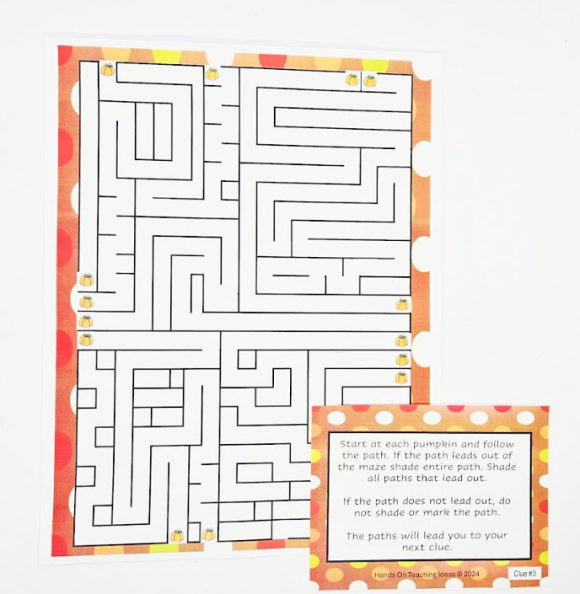 Start at each pumpkin and follow
the path. If the path leads out of
the maze shade entire path. Shade
all paths that lead out.
If the path does not lead out, do
not shade or mark the path.
The paths will lead you to your
next clue.
Hands On Teaching Ideas © 2024
Clue #3